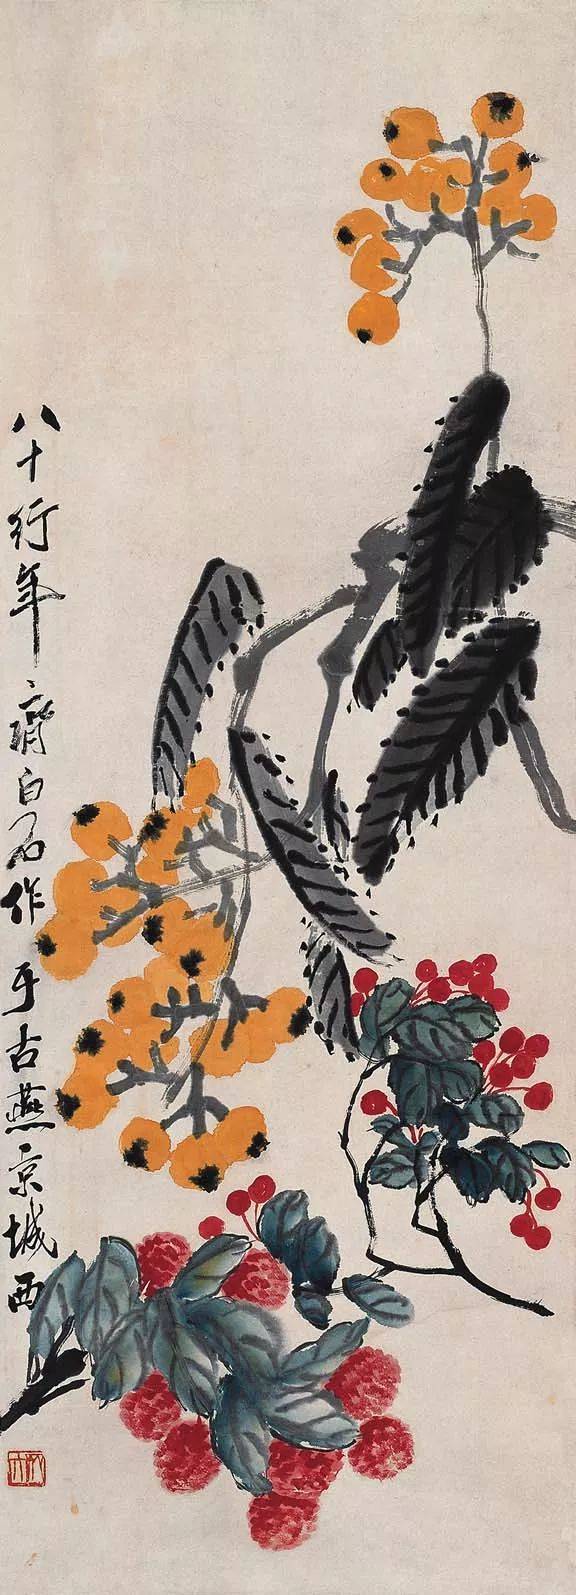 八十行年齊白石作于古燕京城西